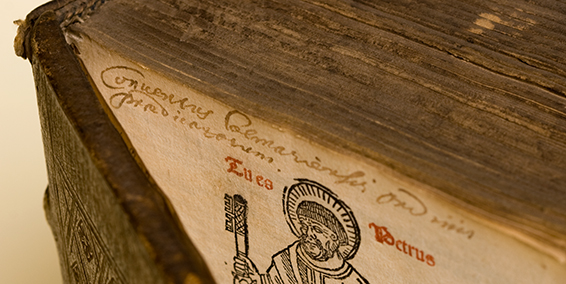 Conventus Colmariensis ord inis
Prædicatorum.
Tu es Petrus